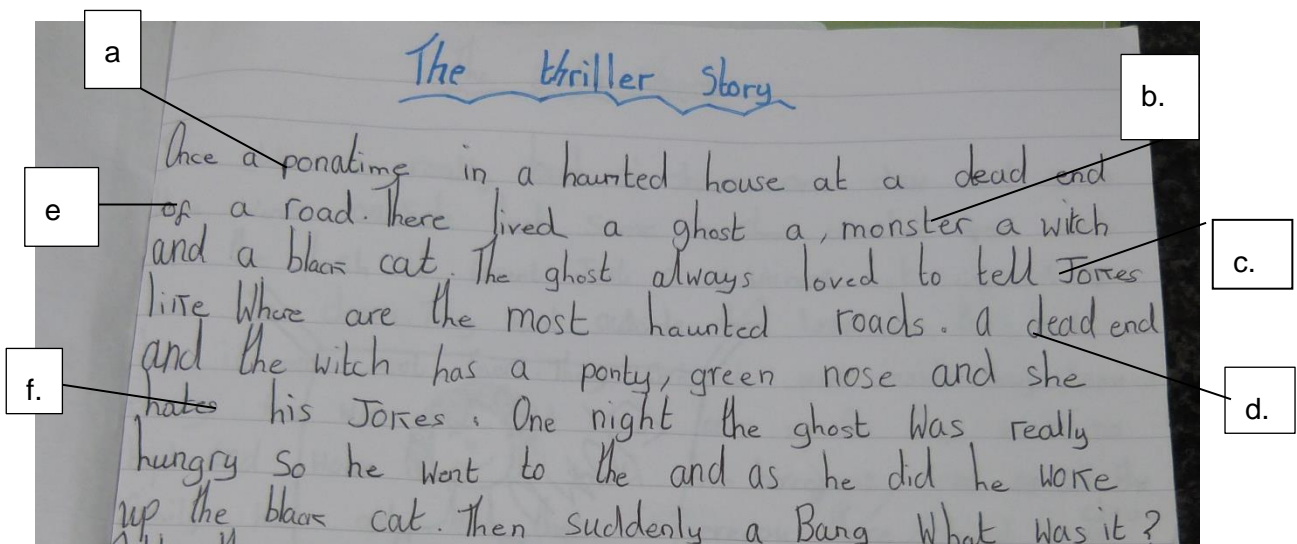 a
The thriller Story
b.
Once a ponatime in a haunted house at a dead end
e
of a road. There lived a ghost a, monster a witch
and a black cat. The ghost always loved to tell Jokes
c.
like Where are the most haunted roads. a dead end
and the witch has a ponty, green nose and she
f.
hates his Jokes. One night the ghost was really
d.
hungry So he went to the and as he did he woke
up the black cat. Then suddenly a Bang What was it?